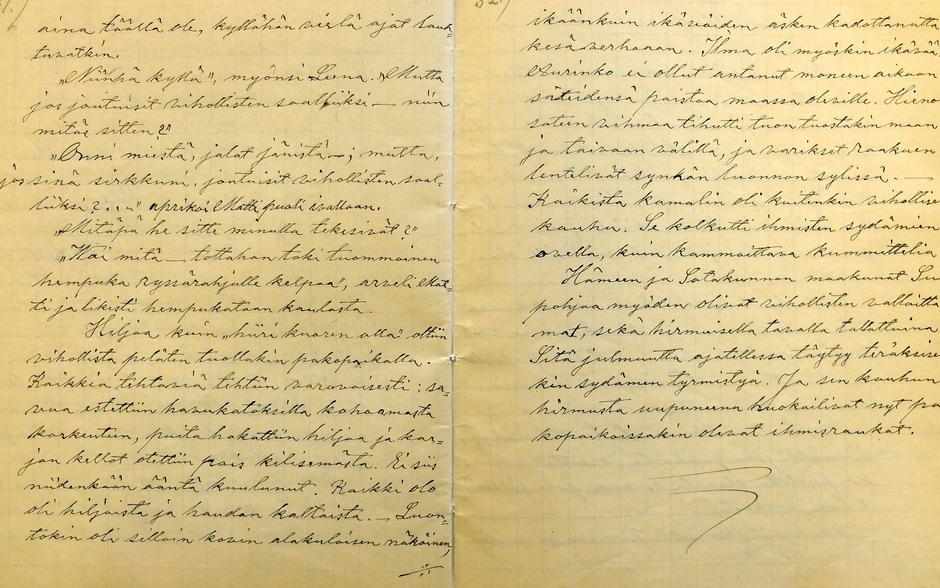 aina täällä ole, kyllähän vielä ajat laux-
tuvatkin.
„Niinpä kyllä", myönsi Leena. „Mutta
jos joutuisit vihollisten saaliiksi — niin
mitäs sitten?"
„Onni miestä, jalat jänistä —; mutta,
jos sinä sirkkuni, joutuisit vihollisten saal-
liiksi?..." aprikoi Matti puoli ivallaan.
„Mitäpä he sitte minulla tekesivät?"
„Vai mitä — tottahan toki tuommoinen
hempuka ryssärähjälle kelpaa", arveli Mat-
ti ja likisti hempukataan kaulasta.
Hiljaa kuin „hiiri knaren alla" oltiin
vihollista pelätin tuollakin pakopaikalla.
Kaikkia tehtäviä tehtiin varovaisesti: sa-
vua estettiin havukatoksilla kohoamasta
korkeutun, puita hakattiin hiljaa ja kar-
jan kellot otettiin pois kilisemästä. Ei siis
niidenkään ääntä kuulunut. Kaikki olo
oli hiljaista ja haudan kaltaista. — Luon-
tokin oli silloin kovin alakuloisen näköinen,
ikäänkuin ikävöiden äsken kadottanutta
kesäverhoaan. Ilma oli myöskin ikävä.
Aurinko ei ollut antanut moneen aikaan
säteidensä paistaa maassa oleville. Hieno
sateen vihmaa tihutti tuon tuostakin maan
ja taivaan väliltä, ja varikset raakuen
lentelivät synkän luonnon sylissä. —
Kaikista kamalin oli kuitenkin vihollise
kauhu. Se kolkutti ihmisten sydämien
ovella, kuin kammoittava kummittelia
Hämeen ja Satakunnan maakunat Su
pohjaa myöden olivat vihollisten valloitta
mat, sekä hirmuisella tavalla tallattuina
Sitä julmuutta ajatellessa täytyy teräksise
kin sydämen tyrmistyä. Ja sen kauhun
hirmusta uupuneena huokailivat nyt pa
kopaikoissakin olevat ihmisraukat.